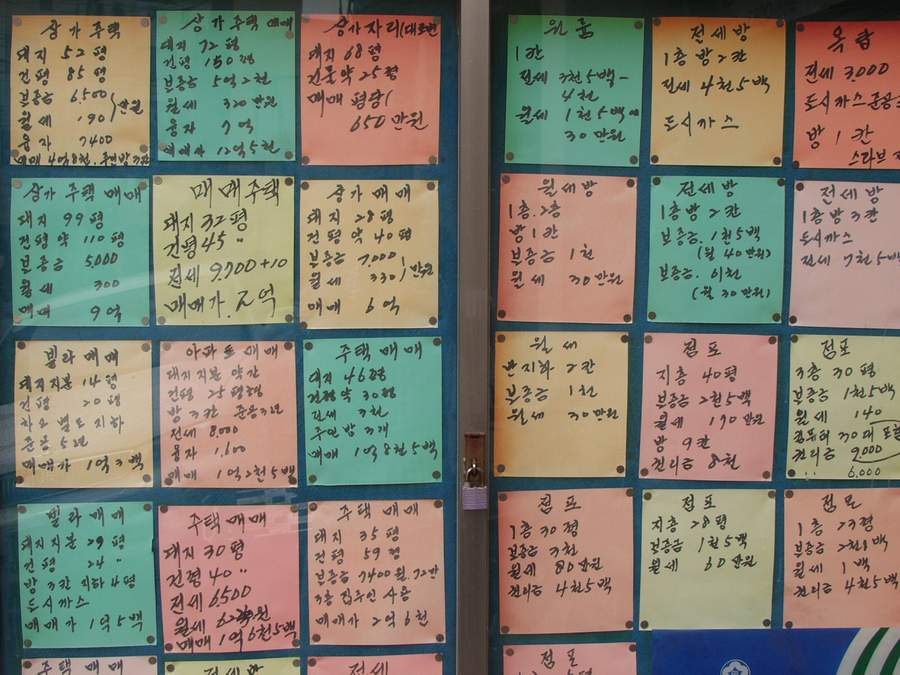 상가주택
대지 52평
건평 85평
보증금 6,500
월세 190 만원
융자 7400
매매 4억8천.
상가 주택 매매
대지 72평
건평 150평
보증금 5억2천
월세 320만원
융자 7억
12억5천
상가자리(대로변
대지 68평
건물약 25평
매매 평당
650만원
상가 주택 매매
대지 99평
건평약 110평
보증금 5,000
월세 300
매매 9억
매매주택
대지 32평
건평 45 〃
전세 9,700+10
매매가.
상가 매매
대지 28평
건평 약 40평
보증금 7,000
월세 330 만원
매매 6억
빌라 매매
대지지분 14평
건평 20평
별도 지하
준공 5년
매매가 1억3백
아파트 매매
대지지분 약간
건평 25평형
방 3칸 준공3년
전세 8,000
융자 1,600
매매 1억2천5백
주택 매매
대지 46평
건평약 30평
전세 3천
주인방 3개
매매 1억8천5백
빌라 매매
대지지분 29평
건평 24 〃
방 3칸 지하4평
도시까스
매매가 1억5백
주택 매매
대지 30평
건평 40 〃
전세 6500
월세
매매 1억6천5백
주택 매매
대지 35평
건평 59평
보증금 7400 월.72만
3층 집주인 사용
매매가 2억6천
주택 매매
전세
원룸
1칸
전세 3천5백-
4천
월세 1천5백에
30만원
전세방
1층 방 2칸
전세 4천5백
도시까스
옥탑
전세 3000
도시까스
방 1칸
스라브
월세방
1층.2층
방 1칸
보증금 1천
월세 30만원
전세방
1층방 2칸
보증금. 1천5백
(월 40만원)
보증금. 이천
(월 30만원)
전세방
1층방 3칸
도시까스
전세 7천5백
월세
반지하 2칸
보증금 1천
월세 30만원
점포
지층 40평
보증금 2천5백
월세 190만원
방 9칸
권리금 8천
점포
3층 30평
보증금 1천5백
월세 140
컴퓨터 30대 포함
권리금 9,000
6,000
점포
1층 30평
보증금 3천
월세 80만원
권리금 4천5백
점포
지층 28평
보증금 1천5백
월세 60만원
점포
1층 23평
보증금
월세 1백
권리금 4천5백
점포